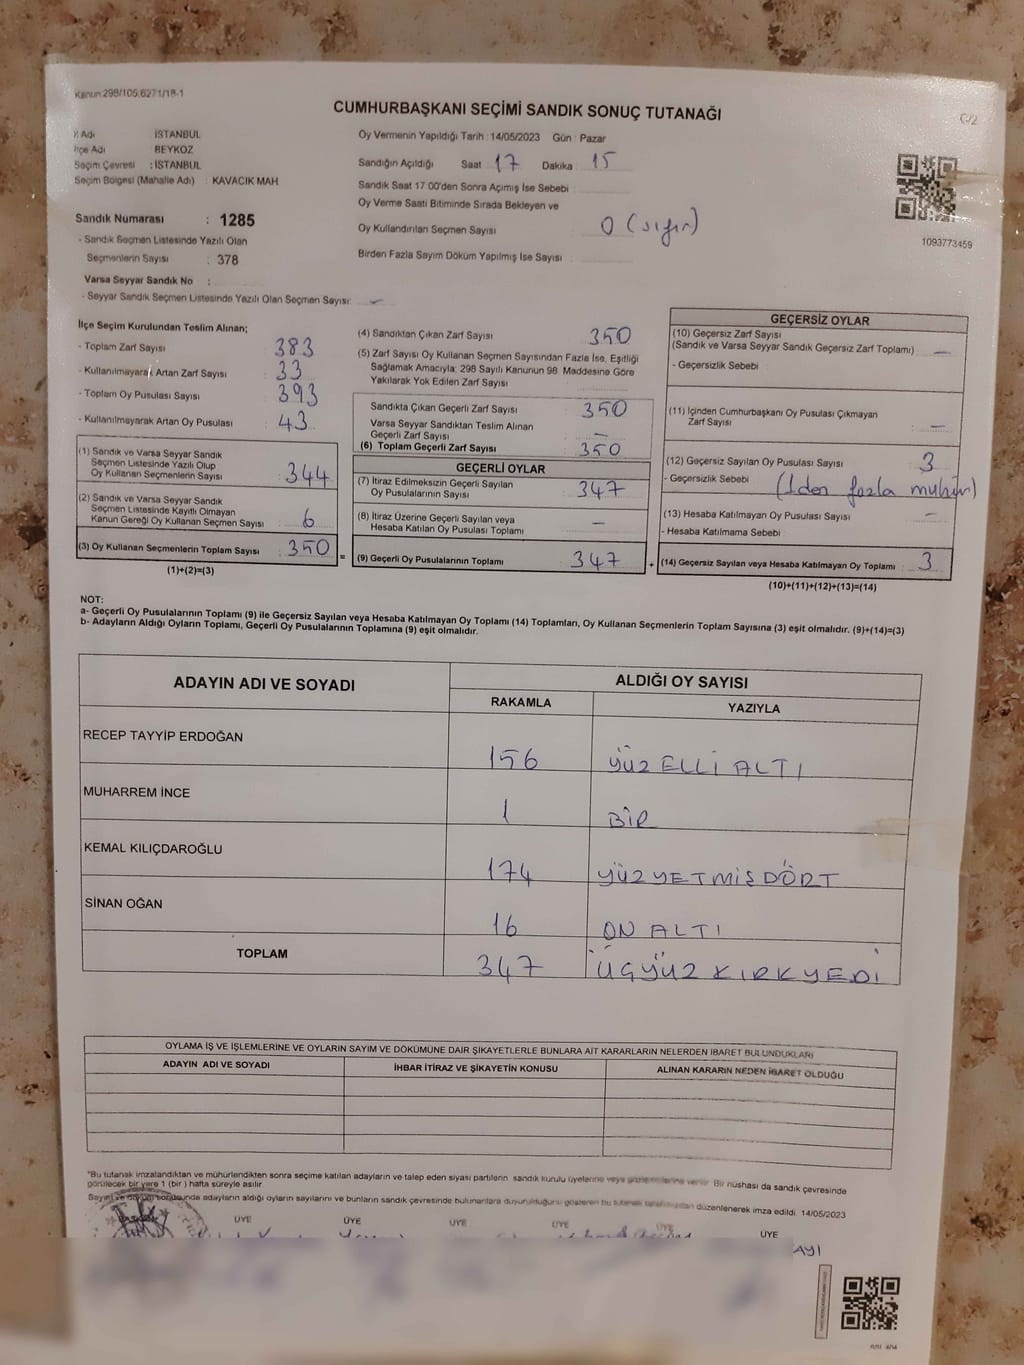 Kanun:298/105,6271/18-1
CUMHURBAŞKANI SEÇİMİ SANDIK SONUÇ TUTANAĞI
C/2
İl Adı İSTANBUL
İlçe Adı BEYKOZ
Seçim Çevresi : İSTANBUL
Seçim Bölgesi (Mahalle Adı) : KAVACIK MAH
Sandık Numarası : 1285
- Sandık Seçmen Listesinde Yazılı Olan
Seçmenlerin Sayısı : 378
Varsa Seyyar Sandık No :
- Seyyar Sandık Seçmen Listesinde Yazılı Olan Seçmen Sayısı: -
Oy Vermenin Yapıldığı Tarih : 14/05/2023 Gün : Pazar
Sandığın Açıldığı Saat 17 Dakika 15
Sandık Saat 17 00'den Sonra Açımış İse Sebebi
Oy Verme Saati Bitiminde Sırada Bekleyen ve
Oy Kullandırılan Seçmen Sayısı 0 (sıfır)
Birden Fazla Sayım Döküm Yapılmış İse Sayısı :
1093773459
İlçe Seçim Kurulundan Teslim Alınan;
- Toplam Zarf Sayısı : 383
- Kullanılmayarak Artan Zarf Sayısı : 33
- Toplam Oy Pusulası Sayısı : 393
- Kullanılmayarak Artan Oy Pusulası : 43
(1) Sandık ve Varsa Seyyar Sandık
Seçmen Listesinde Yazılı Olup
Oy Kullanan Seçmenlerin Sayısı : 344
(2) Sandık ve Varsa Seyyar Sandık
Seçmen Listesinde Kayıtlı Olmayan
Kanun Gereği Oy Kullanan Seçmen Sayısı : 6
(3) Oy Kullanan Seçmenlerin Toplam Sayısı : 350
(1)+(2)=(3)
=
(4) Sandıktan Çıkan Zarf Sayısı 350
(5) Zarf Sayısı Oy Kullanan Seçmen Sayısından Fazla İse, Eşitliği
Sağlamak Amacıyla; 298 Sayılı Kanunun 98. Maddesine Göre
Yakılarak Yok Edilen Zarf Sayısı
Sandıkta Çıkan Geçerli Zarf Sayısı : 350
Varsa Seyyar Sandıktan Teslim Alınan
Geçerli Zarf Sayısı : -
(6) Toplam Geçerli Zarf Sayısı : 350
GEÇERLİ OYLAR
(7) İtiraz Edilmeksizin Geçerli Sayılan
Oy Pusulalarının Sayısı : 347
(8) İtiraz Üzerine Geçerli Sayılan veya
Hesaba Katılan Oy Pusulası Toplamı : -
(9) Geçerli Oy Pusulalarının Toplamı : 347
+
GEÇERSİZ OYLAR
(10) Geçersiz Zarf Sayısı
(Sandık ve Varsa Seyyar Sandık Geçersiz Zarf Toplamı) : -
- Geçersizlik Sebebi
(11) İçinden Cumhurbaşkanı Oy Pusulası Çıkmayan
Zarf Sayısı : -
(12) Geçersiz Sayılan Oy Pusulası Sayısı : 3
- Geçersizlik Sebebi (1den fazla mühür)
(13) Hesaba Katılmayan Oy Pusulası Sayısı : -
- Hesaba Katılmama Sebebi
(14) Geçersiz Sayılan veya Hesaba Katılmayan Oy Toplamı : 3
(10)+(11)+(12)+(13)=(14)
NOT:
a- Geçerli Oy Pusulalarının Toplamı (9) ile Geçersiz Sayılan veya Hesaba Katılmayan Oy Toplamı (14) Toplamları, Oy Kullanan Seçmenlerin Toplam Sayısına (3) eşit olmalıdır. (9)+(14)=(3)
b- Adayların Aldığı Oyların Toplamı, Geçerli Oy Pusulalarının Toplamına (9) eşit olmalıdır.
ADAYIN ADI VE SOYADI
ALDIĞI OY SAYISI
RAKAMLA YAZIYLA
RECEP TAYYİP ERDOĞAN 156 YÜZ ELLİ ALTI
MUHARREM İNCE 1 BİR
KEMAL KILIÇDAROĞLU 174 YÜZ YETMİŞ DÖRT
SİNAN OĞAN 16 ON ALTI
TOPLAM 347 ÜÇYÜZ KIRK YEDİ
OYLAMA İŞ VE İŞLEMLERİNE VE OYLARIN SAYIM VE DÖKÜMÜNE DAİR ŞİKAYETLERLE BUNLARA AİT KARARLARIN NELERDEN İBARET BULUNDUKLARI
ADAYIN ADI VE SOYADI İHBAR İTİRAZ VE ŞİKAYETİN KONUSU ALINAN KARARIN NEDEN İBARET OLDUĞU
"Bu tutanak imzalandıktan ve mühürlendikten sonra seçime katılan adayların ve talep eden siyasi partilerin sandık kurulu üyelerine veya gözlemcilerine verilir. Bir nüshası da sandık çevresinde
görülecek bir yere 1 (bir) hafta süreyle asılır.
Sayım ve döküm sonucunda adayların aldığı oyların sayılarını ve bunların sandık çevresinde bulunanlara duyurulduğunu gösteren bu tutanak tarafımızdan düzenlenerek imza edildi. 14/05/2023
ÜYE ÜYE ÜYE ÜYE ÜYE ÜYE